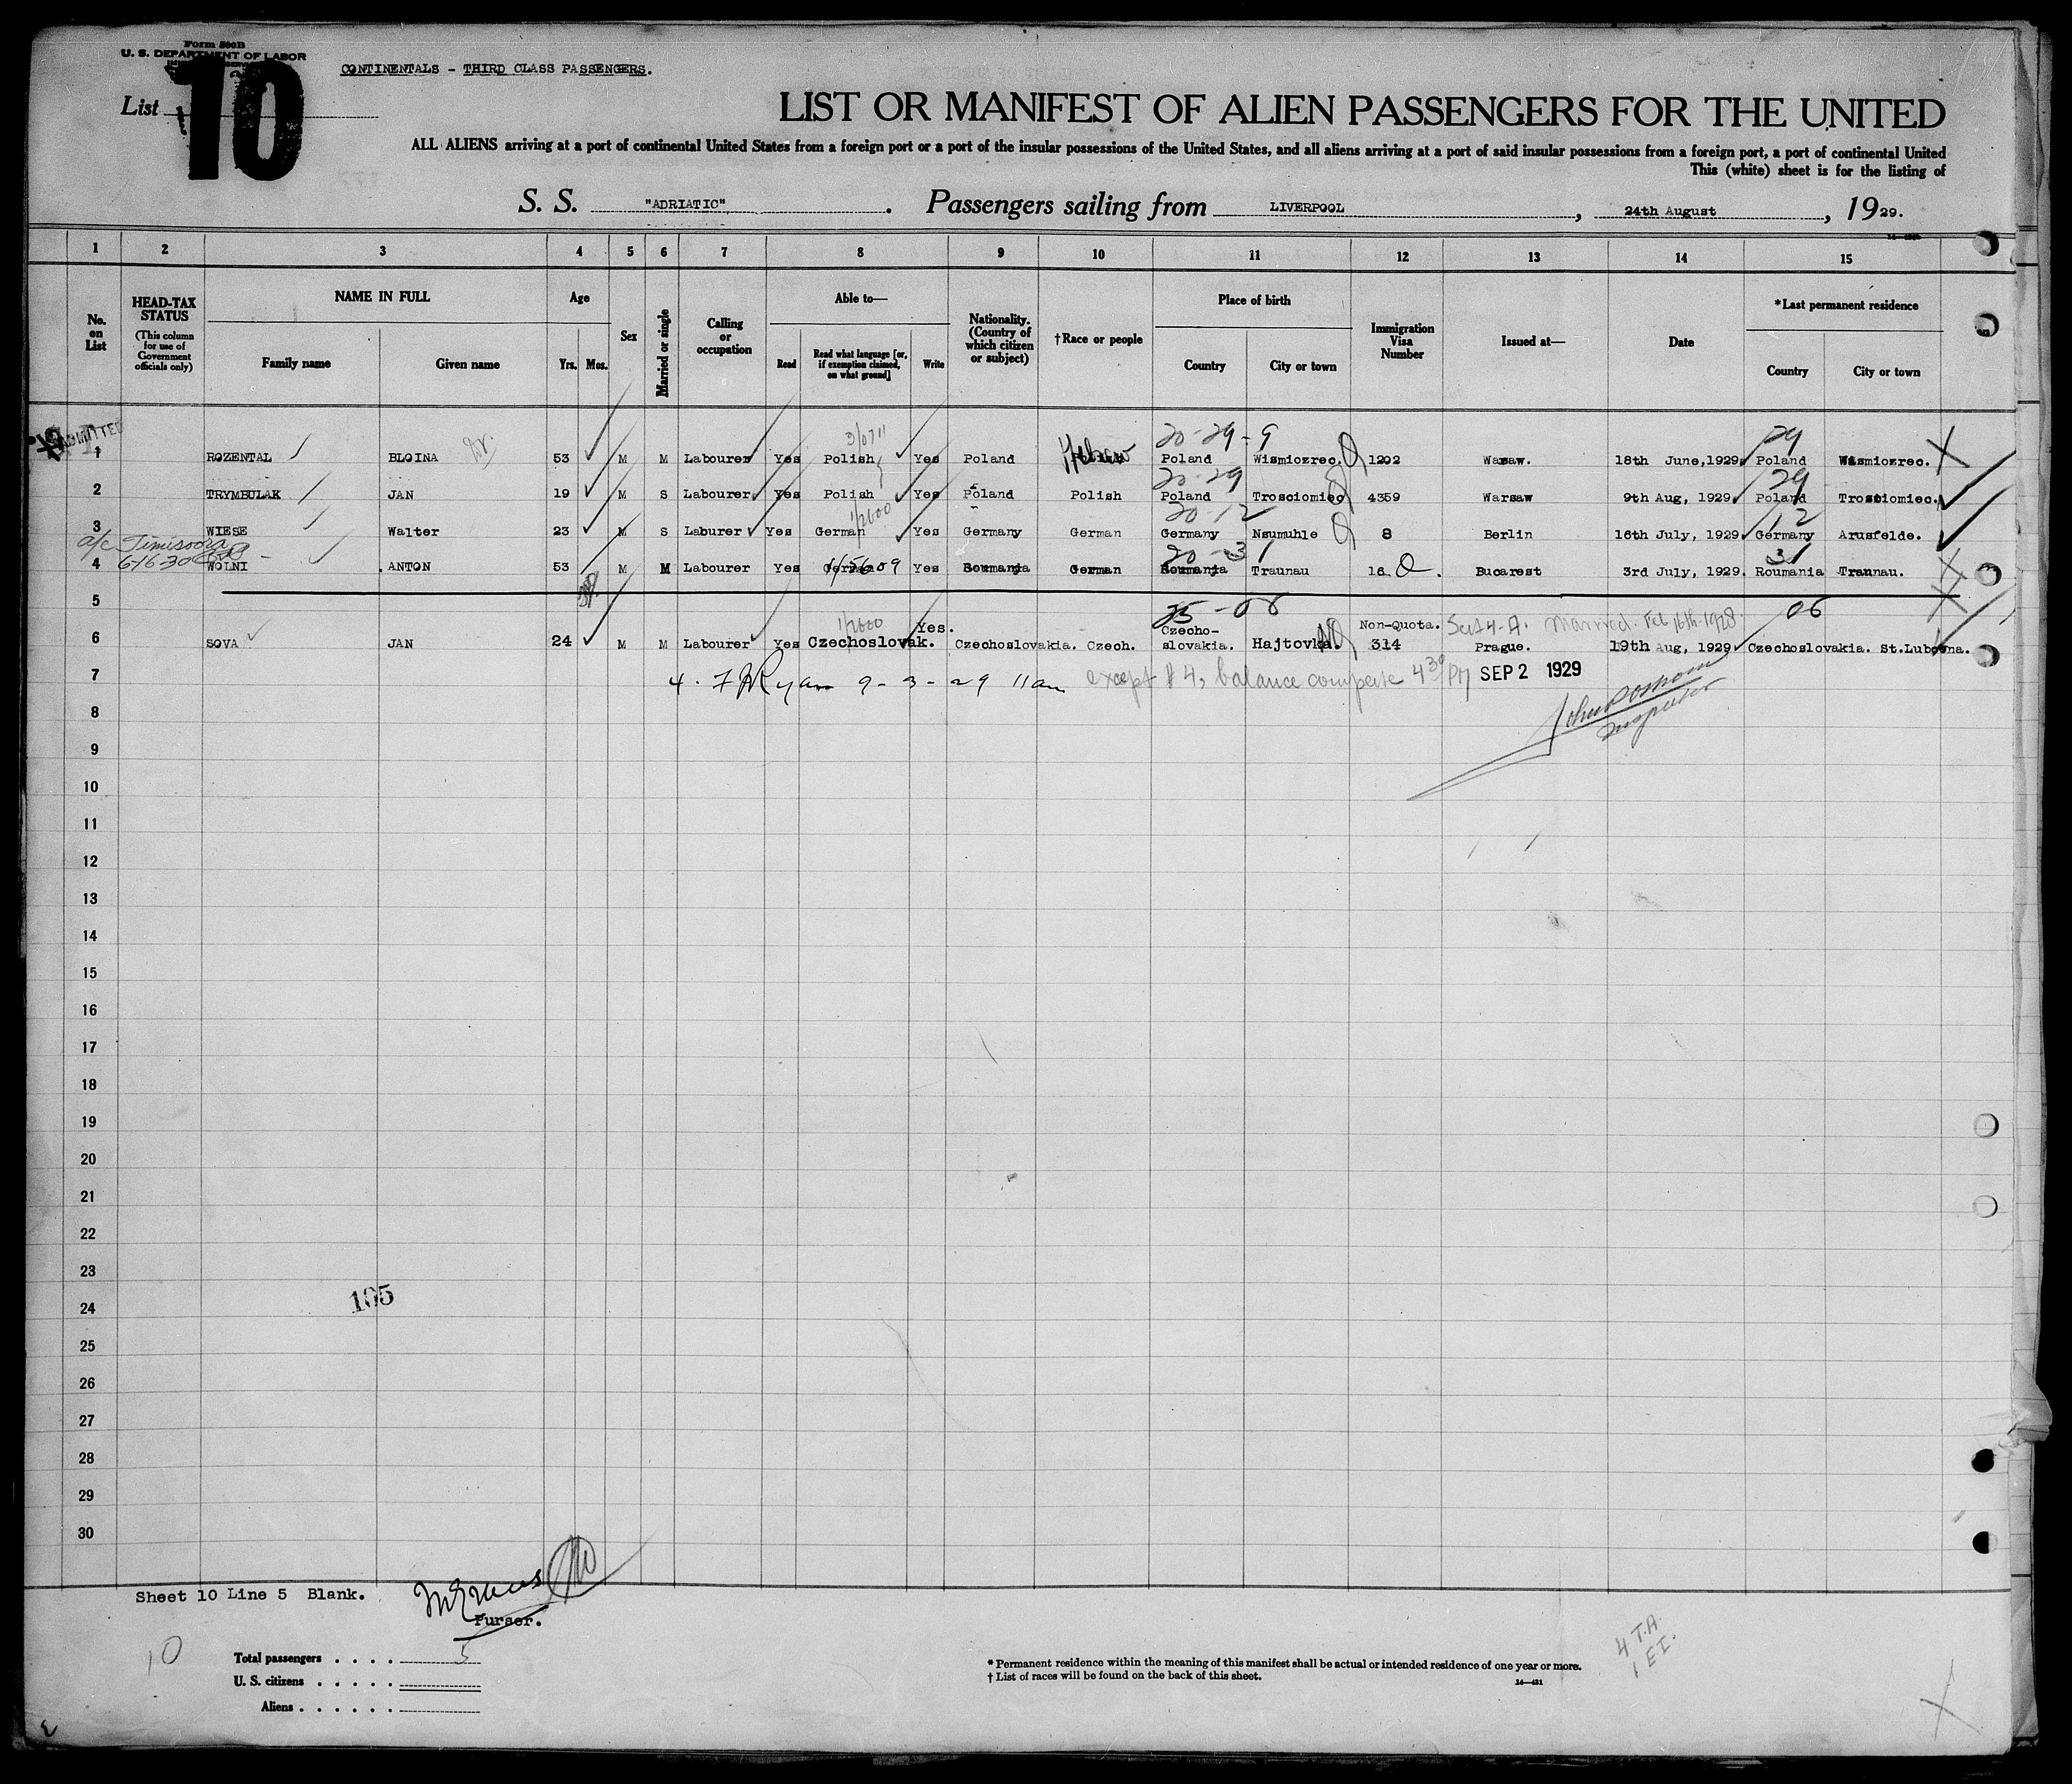 Form 500B
U. S. DEPARTMENT OF LABOR
CONTINENTALS - THIRD CLASS PASSENGERS.
List 10
LIST OR MANIFEST OF ALIEN PASSENGERS FOR THE UNITED
ALL ALIENS arriving at a port of continental United States from a foreign port or a port of the insular possessions of the United States, and all aliens arriving at a port of said insular possessions from a foreign port, a port of continental United
This (white) sheet is for the listing of
S. S. "ADRIATIC", . Passengers sailing from LIVERPOOL , 24th August , 1929.
1 2 3 4 5 6 7 8 9 10 11 12 13 14 15
No. on List
HEAD-TAX STATUS (This column for use of Government officials only)
NAME IN FULL
Family name Given name
Age
Yrs. Mos.
Sex
Married or single
Calling or occupation
Able to—
Read
Read what language [or, if exemption claimed, on what ground]
Write
Nationality. (Country of which citizen or subject)
†Race or people
Place of birth
Country City or town
Immigration Visa Number
Issued at—
Date
*Last permanent residence
Country City or town
ADMITTED
20-29-9 29
1 ROZENTAL BLOINA 53 M M Labourer Yes Polish Yes Poland Hebrew Poland Wismiozrec. 1202 Warsaw. 18th June,1929 Poland Wismiozrec.
20-29 29
2 TRYMBULAK JAN 19 M S Labourer Yes Polish Yes Poland Polish Poland Trosciomiec 4359 Warsaw 9th Aug, 1929 Poland Trostiomiec.
1/2600 20-12 12
3 WIESE Walter 23 M S Laburer Yes German Yes Germany German Germany Nsumuhle 8 Berlin 16th July, 1929 Germany Arusfelde.
a/c Timisoora
6-16-30
20-31 31
4 WOLNI ANTON 53 M M Labourer Yes German Yes Roumania German Roumania Traunau 16 Bucarest 3rd July, 1929. Roumania Traunau.
5
25-06 06
1/2600 Yes. Non-Quota. Sec 4-A. Married. Feb 16th-1928
6 SOVA JAN 24 M M Labourer Yes Czechoslovak. Czechoslovakia. Czech. Czecho-slovakia. Hajtovka. 314 Prague. 19th Aug, 1929 Czechoslovakia. St.Lubovna.
7 4. F J Ryan 9-3-29 11am except #4, balance complete 4 30 PM SEP 2 1929
8
Inspector
9
10
11
12
13
14
15
16
17
18
19
20
21
22
23
24 105
25
26
27
28
29
30
Sheet 10 Line 5 Blank.
Purser.
10
Total passengers . . . . 5
U. S. citizens . . . . .
Aliens . . . . . .
* Permanent residence within the meaning of this manifest shall be actual or intended residence of one year or more.
† List of races will be found on the back of this sheet.
14—431
4 T.A
1 E.I.